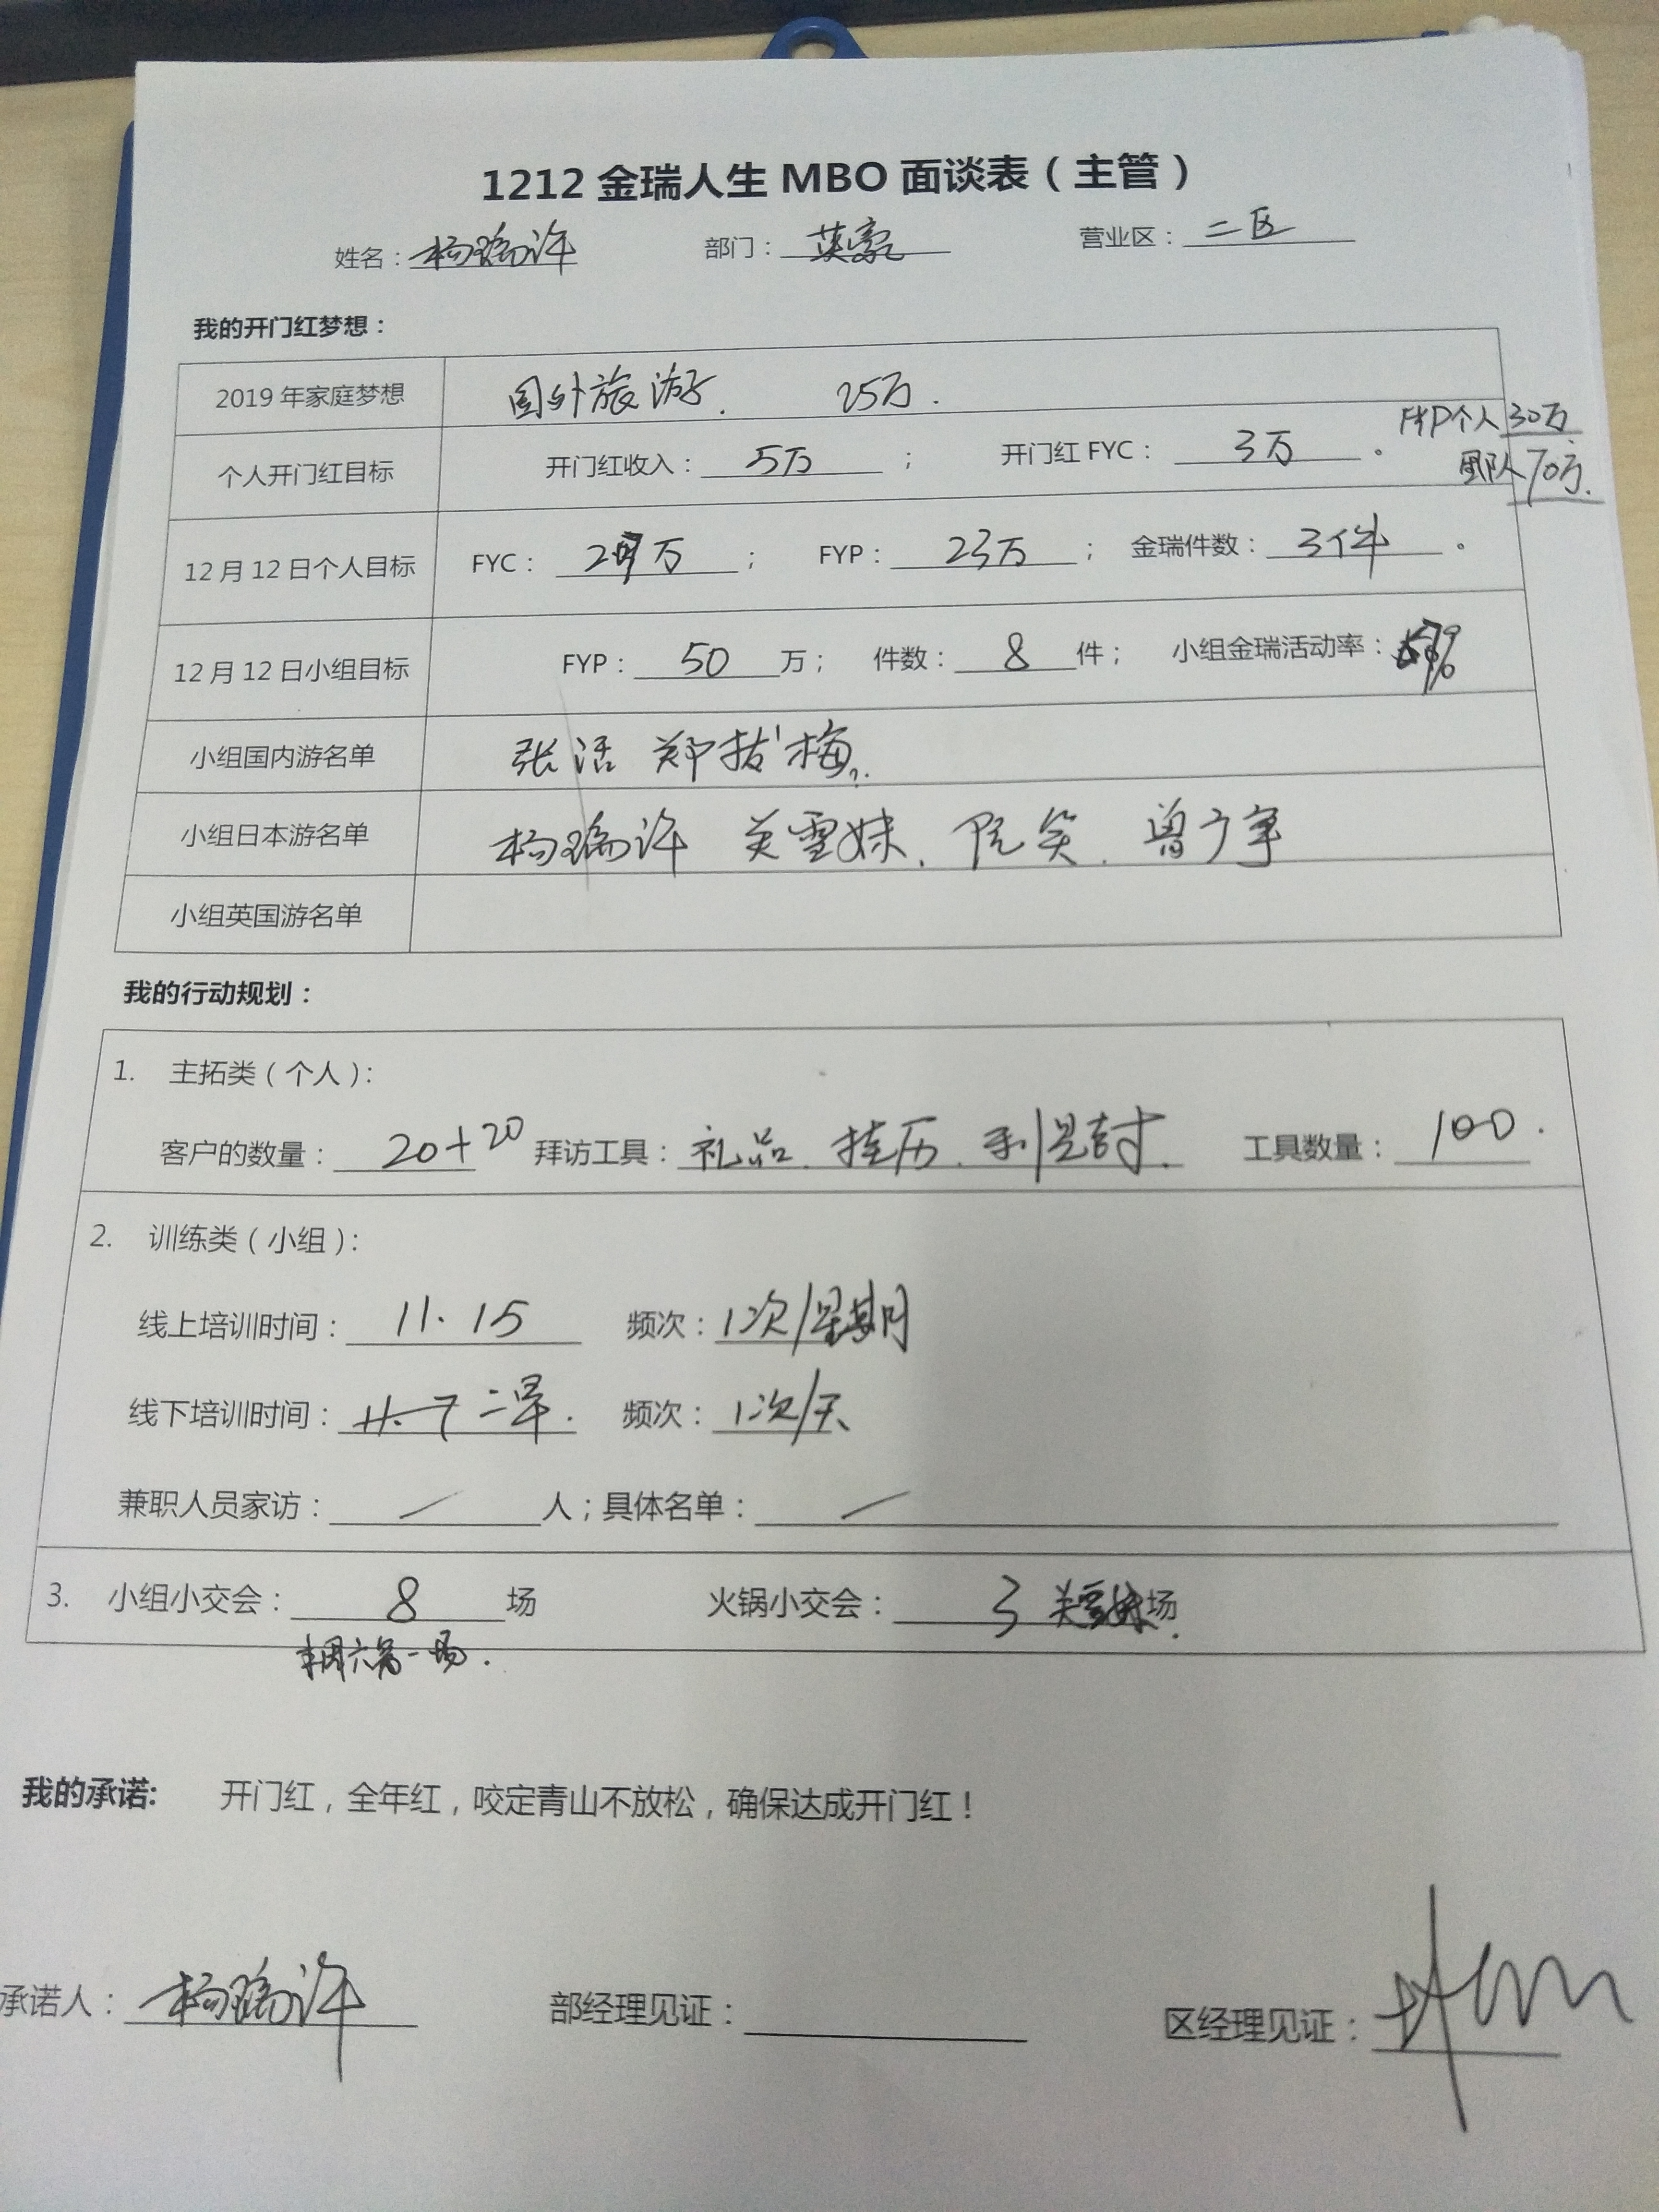 1212 金瑞人生 MBO 面谈表（主管）
姓名：杨瑞许 部门：英豪 营业区：二区
我的开门红梦想：
2019 年家庭梦想 国外旅游. 25万.
FYP个人30万
个人开门红目标 开门红收入：5万； 开门红 FYC：3万。
团队70万.
12 月 12 日个人目标 FYC： 万； FYP：23万； 金瑞件数：3件。
12 月 12 日小组目标 FYP：50万； 件数：8件； 小组金瑞活动率：
小组国内游名单 张活 郑 梅
小组日本游名单 杨瑞许 关雪妹. 阮笑. 曾广宇
小组英国游名单
我的行动规划：
1. 主拓类（个人）：
客户的数量：20+20 拜访工具：礼品. 挂历. 利是封. 工具数量：100.
2. 训练类（小组）：
线上培训时间：11.15 频次：1次/星期
线下培训时间： 二早. 频次：1次/天
兼职人员家访：／人；具体名单：／
3. 小组小交会：8场 火锅小交会：3 关雪妹场
一场.
我的承诺: 开门红，全年红，咬定青山不放松，确保达成开门红！
承诺人：杨瑞许 部经理见证： 区经理见证：